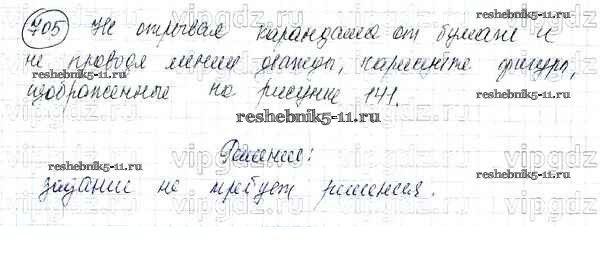 705 Не отрывая карандаша от бумаги и
не проводя линии дважды, нарисуйте фигуры,
изображенные на рисунке 141.
Решения:
задание не требует решения.
reshebnik5-11.ru
reshebnik5-11.ru
reshebnik5-11.ru
reshebnik5-11.ru
reshebnik5-11.ru
reshebnik5-11.ru
vipgdz
vipgdz
vipgdz